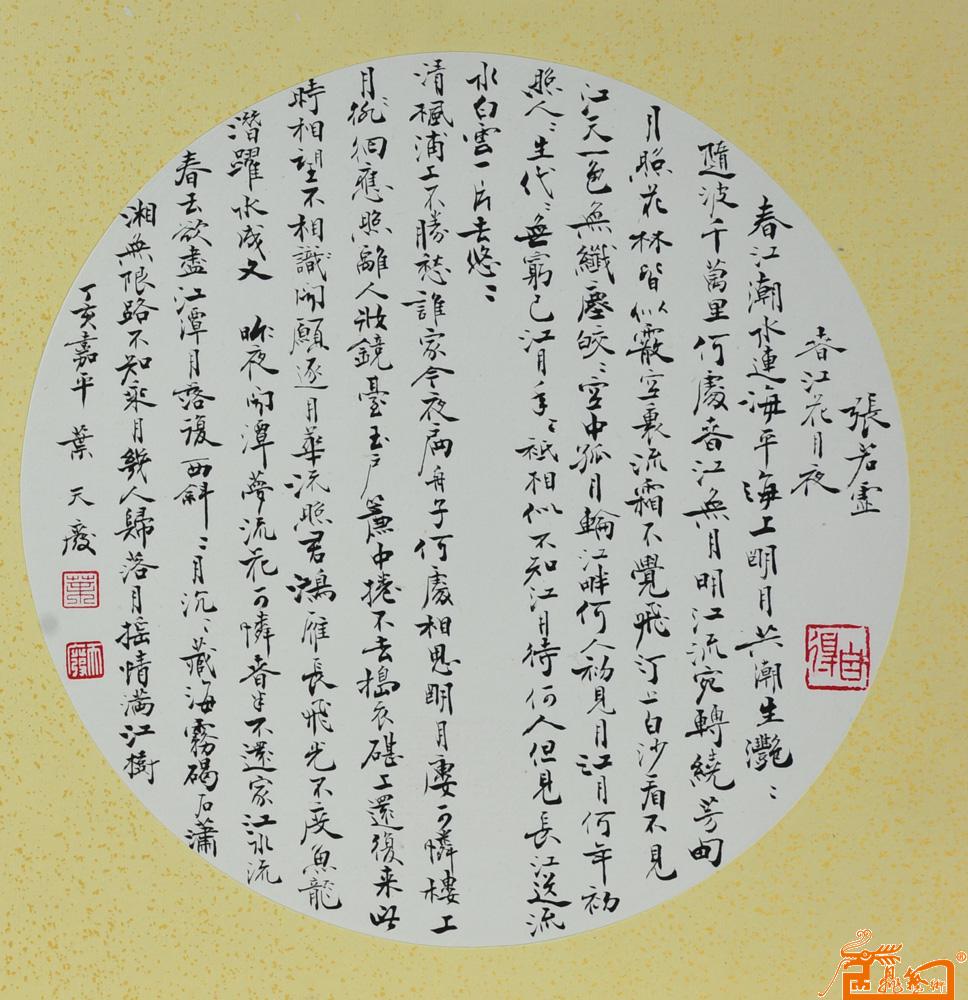 張若虛
春江花月夜
春江潮水連海平海上明月共潮生灔〻
隨波千萬里何處春江無月明江流宛轉繞芳甸
月照花林皆似霰空裏流霜不覺飛汀上白沙看不見
江天一色無纖塵皎〻空中孤月輪江畔何人初見月江月何年初
照人〻生代〻無窮已江月年〻祗相似不知江月待何人但見長江送流
水白雲一片去悠〻
清楓浦上不勝愁誰家今夜扁舟子何處相思明月樓可憐樓上
月徘徊應照離人妝鏡臺玉戶簾中捲不去搗衣碪上還復来此
時相望不相識聞願逐月華流照君鴻雁長飛光不度魚龍
潛躍水成文 昨夜閒潭夢流花可憐春半不還家江水流
春去欲盡江潭月落復西斜〻月沉〻藏海霧碣石瀟
湘無限路不知乘月幾人歸落月搖情满江樹
丁亥嘉平 葉天廢
自得
葉
天廢